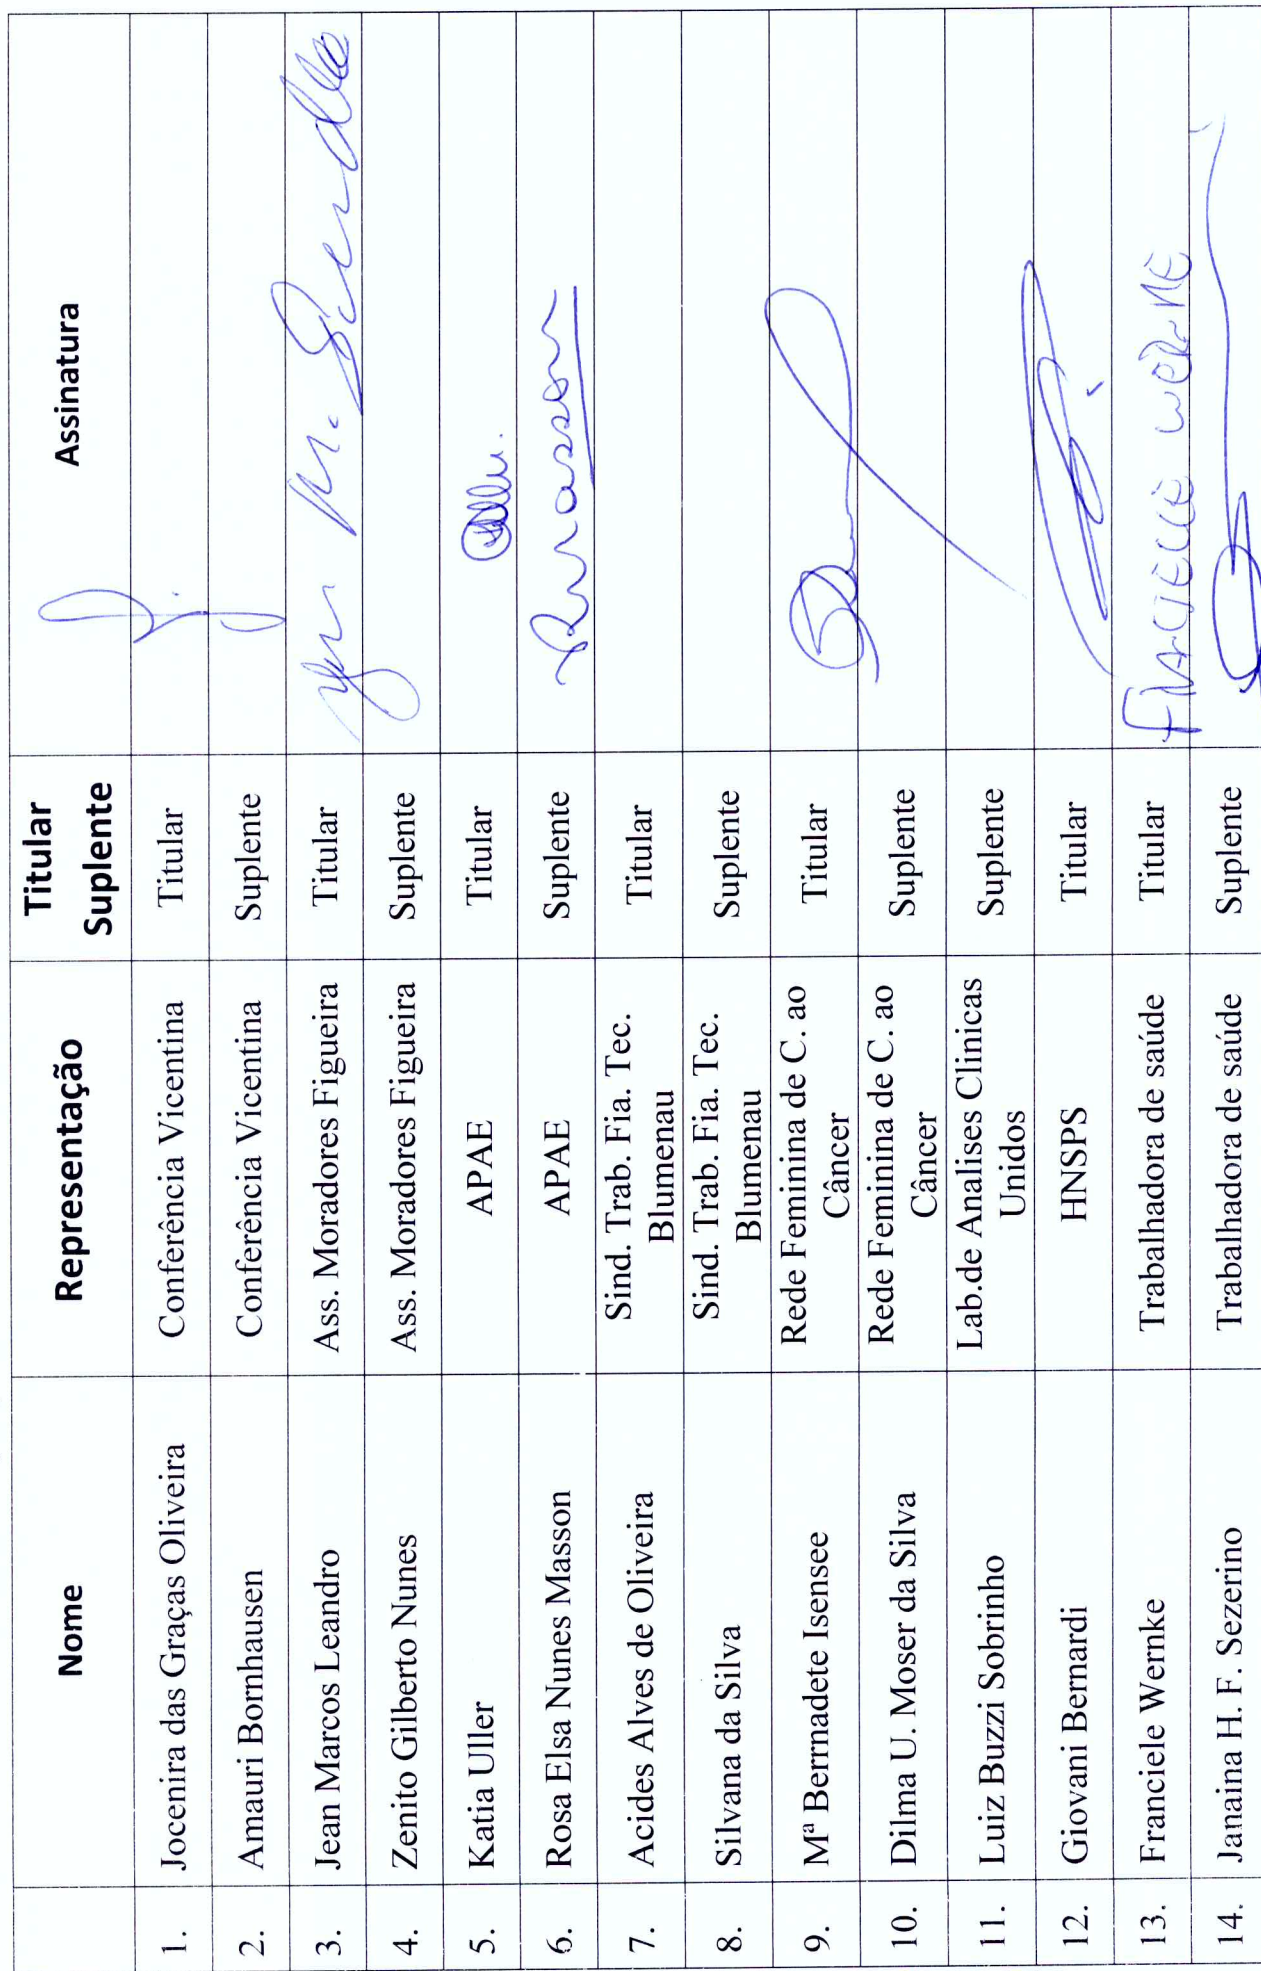 Nome Representação Titular Suplente Assinatura
1. Jocenira das Graças Oliveira Conferência Vicentina Titular
2. Amauri Bornhausen Conferência Vicentina Suplente
3. Jean Marcos Leandro Ass. Moradores Figueira Titular
4. Zenito Gilberto Nunes Ass. Moradores Figueira Suplente
5. Katia Uller APAE Titular
6. Rosa Elsa Nunes Masson APAE Suplente
7. Acides Alves de Oliveira Sind. Trab. Fia. Tec. Blumenau Titular
8. Silvana da Silva Sind. Trab. Fia. Tec. Blumenau Suplente
9. Mª Berrnadete Isensee Rede Feminina de C. ao Câncer Titular
10. Dilma U. Moser da Silva Rede Feminina de C. ao Câncer Suplente
11. Luiz Buzzi Sobrinho Lab.de Analises Clinicas Unidos Suplente
12. Giovani Bernardi HNSPS Titular
13. Franciele Wernke Trabalhadora de saúde Titular
14. Janaina H. F. Sezerino Trabalhadora de saúde Suplente